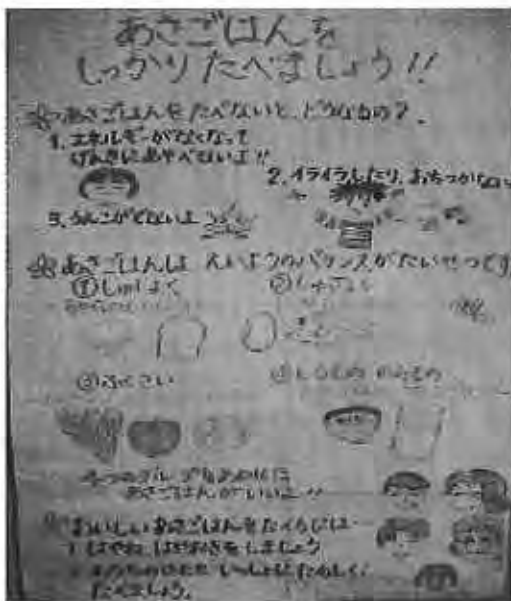 あさごはんを
しっかりたべましょう!!
あさごはんをたべないと、どうなるの?
1. エネルギーがなくなって
げんきにあそべないよ!!
2. イライラしたり、おちつかない
3. うんこがでないよ
あさごはんは えいようのバランスがたいせつです
①しゅしょく
②しゅさい
③ふくさい
④しるもの のみもの
あさごはんがいいよ
おいしいあさごはんをたべるには
1 はやね はやおきをしましょう
いっしょに たのしく
たべましょう。